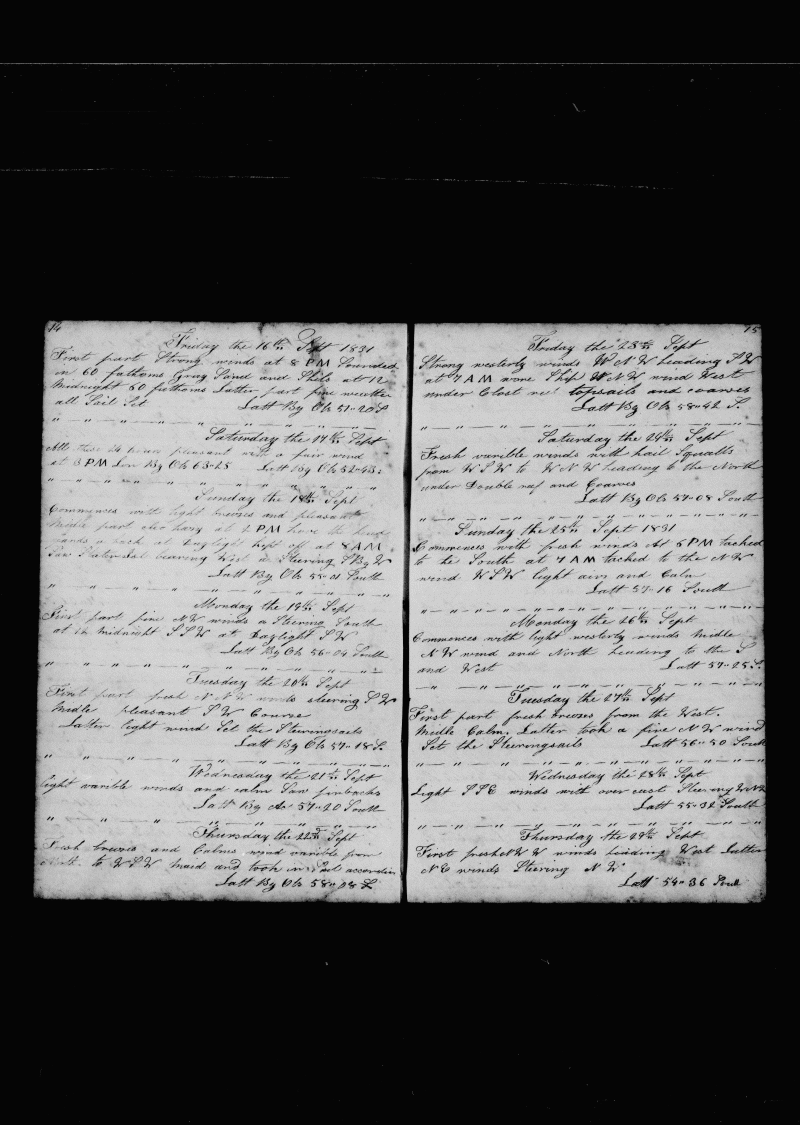 14
Friday the 16th Sept 1831
First part Strong winds at 8 PM Sounded
in 60 fathoms Gray Sand and Shels at 12
Midnight 60 fathoms Latter part fine weather
all Sail Set Latt By Ob 51-20 S
Saturday the 17th Sept
All these 24 hours pleasant with a fair wind
at 3 PM Lon By Ob 63-28 Latt By Ob 52-43
Sunday the 18th Sept
Commences with light breezes and pleasant
Midle part at 2 PM have the head
at Daylight kept off at 8 AM
Saw Staten Land bearing West a Steering S By W
Latt By Ob 55-01 South
Monday the 19th Sept
First part fine N W winds a Steering South
at 12 Midnight S S W at Daylight S W
Latt By Ob 56-04 South
Tuesday the 20th Sept
First part fresh N N W winds steering S W
Midle pleasant S W Course
Latter light wind Set the Steeringsails
Latt By Ob 57-18 S
Wednesday the 21th Sept
light varible winds and calm Saw finbacks
Latt By Ac 57-20 South
Thursday the 22th Sept
Fresh breezes and Calms wind varible from
to W S W maid and took in Sail
Latt By Ob 58-08 S
15
Friday the 23th Sept
Strong westerly winds W N W heading S W
at 7 AM wore Ship W N W wind West
under Close topsails and coarses
Latt By Ob 58-42 S
Saturday the 24th Sept
Fresh varible winds with hail Squalls
from W S W to W N W heading to the North
under Double reef and Coarses
Latt By Ob 57-08 South
Sunday the 25th Sept 1831
Commences with fresh winds At 5 PM tacked
to the South at 7 AM tacked to the N W
wind W S W light airs and Calm
Latt 57-16 South
Monday the 26th Sept
Commences with light westerly winds Midle
N W wind and North heading to the S
and West Latt 57-25 S
Tuesday the 27th Sept
First part fresh breezes from the West.
Midle Calm. Latter took a fine N W wind
Set the Steeringsails Latt 56-50 South
Wednesday the 28th Sept
Light S S E winds with over cast Steering W N W
Latt 55-32 South
Thursday the 29th Sept
First fresh N W W winds heading West Latter
N E winds Steering N W
Latt 54-36 South